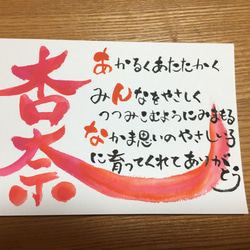 杏奈
あかるくあたたかく
みんなをやさしく
つつみこむようにみまもる
なかま思いのやさしい子
に育ってくれてありがとう